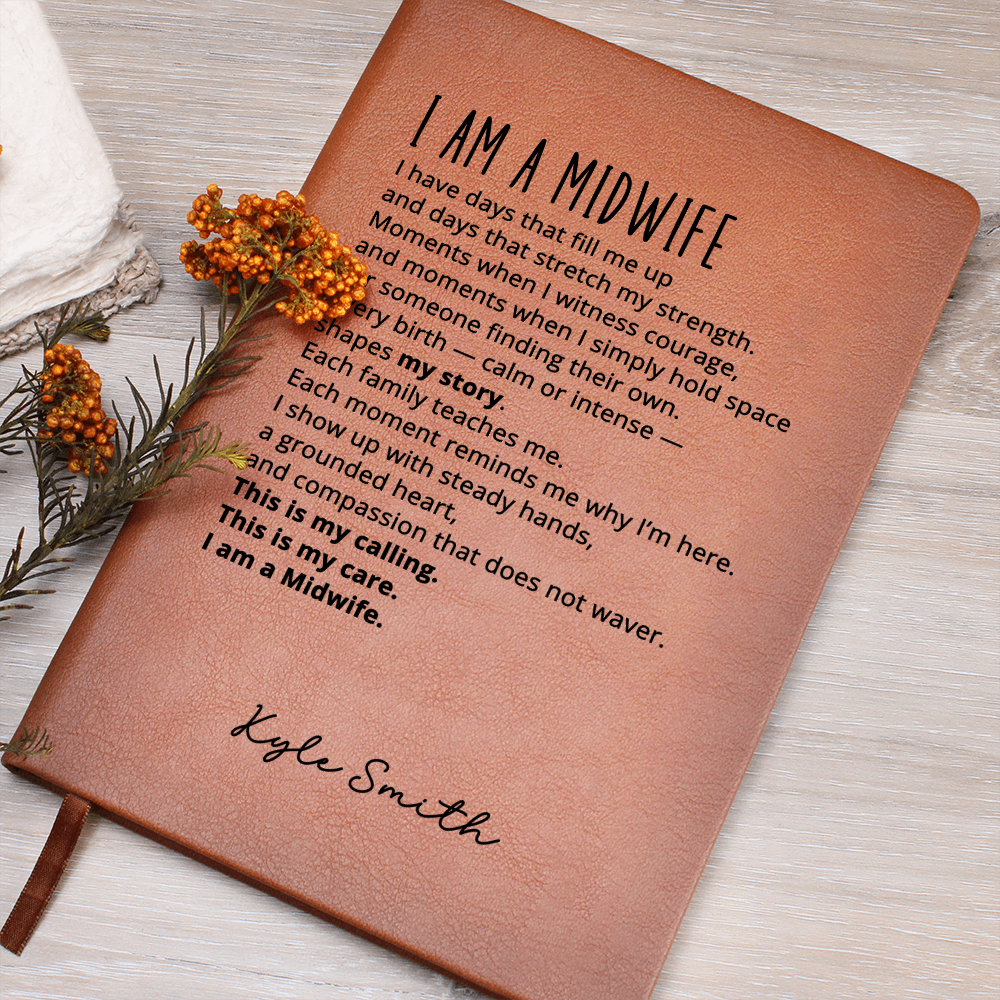 I AM A MIDWIFE
I have days that fill me up
and days that stretch my strength.
Moments when I witness courage,
and moments when I simply hold space
someone finding their own.
birth — calm or intense —
shapes my story.
Each family teaches me.
Each moment reminds me why I’m here.
I show up with steady hands,
a grounded heart,
and compassion that does not waver.
This is my calling.
This is my care.
I am a Midwife.
Kyle Smith